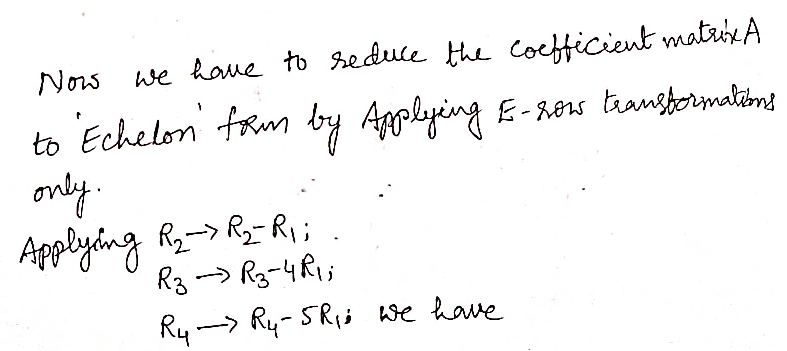 Now we have to reduce the coefficient matrix A
to 'Echelon' form by Applying E-row transformations
only.
Applying R₂→R₂-R₁;
R₃→R₃-4R₁;
R₄→R₄-5R₁; we have